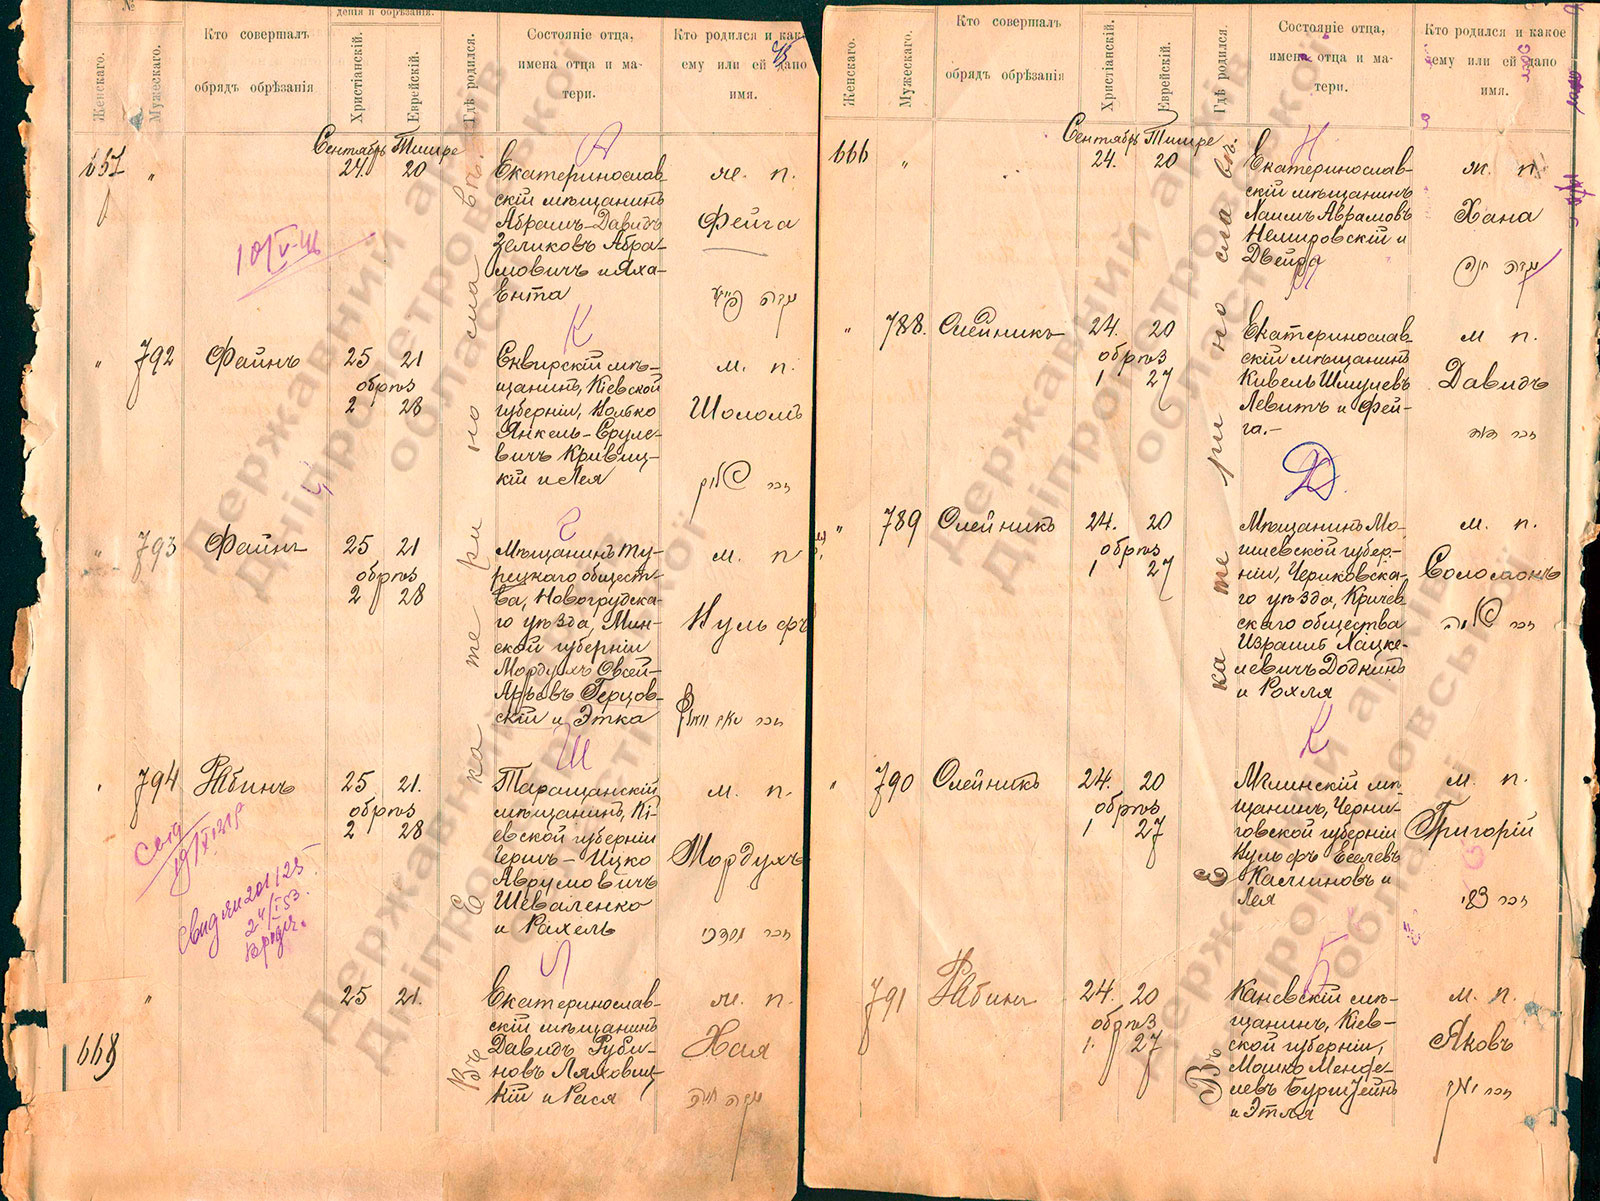 №
дения и обрѣзания.
Женскаго.
Мужескаго.
Кто совершалъ
обрядъ обрѣзанія
Христіанскій.
Еврейскій.
Гдѣ родился.
Состояніе отца,
имена отца и ма-
тери.
Кто родился и как-
ему или ей дано
имя.
Сентябрь Тишре
24. 20
Екатеринослав-
скій мѣщанинъ
Абрамъ-Давидъ
Зеликовъ Абра-
мовичъ и Яха-
Ента
же. п.
Фейга
" 792 Файнъ
25 21
обрѣз
2 28
Сквирскій мѣ-
щанинъ, Кіевской
губерніи, Волько
Янкель-Сруле-
вичъ Кривиц-
кій и Лея
м. п.
Шоломъ
זכר
" 793 Файнъ
25 21
обрѣз
2 28
Мѣщанинъ Ту-
рецкаго общест-
ва, Новогрудска-
го уѣзда, Мин-
ской губерніи
Мордухъ Овсей-
Арьевъ Герцов-
скій и Этка
м. п
Вульфъ
זכר
" 794 Рабинъ
25 21.
обрѣз
2 28
Таращанскій
мѣщанинъ, Кі-
евской губерніи
Гершъ-Ицко
Аврумовичъ
Шеваленко
и Рахель
м. п.
Мордухъ
זכר מרדכי
668
"
25 21.
Екатеринослав-
скій мѣщанинъ
Давидъ Руби-
новъ Ляховиц-
кій и Рася
же. п.
Хая
נקבה חיה
Въ Екатеринославѣ.
Женскаго.
Мужескаго.
Кто совершалъ
обрядъ обрѣзанія
Христіанскій.
Еврейскій.
Гдѣ родился.
Состояніе отца,
имена отца и ма-
тери.
Кто родился и какое
ему или ей дано
имя.
666 "
Сентябрь Тишре
24. 20
Екатеринослав-
скій мѣщанинъ
Хаимъ Аврамовъ
Немировскій и
Двейра
ж. п.
Хана
נקבה חנה
" 788. Олейникъ
24. 20
обрѣз
1 27
Екатеринослав-
скій мѣщанинъ
Кивель Шмулевъ
Левитъ и Фей-
га.-
м п.
Давидъ
זכר דוד
" 789 Олейникъ
24. 20
обрѣз
1 27
Мѣщанинъ Мо-
гилевской губер-
ніи, Чериковска-
го уѣзда, Кричев
скаго общества
Израиль Хацке-
левичъ Додкинъ
и Рохля
м. п.
Соломонъ
זכר שלמה
" 790 Олейникъ
24. 20
обрѣз
1 27
Мглинскій мѣ-
щанинъ, Черни-
говской губерніи
Вульфъ Еселевъ
Каслиновъ и
Лея
м. п.
Григорій
זכר צבי
791 Рабинъ
24. 20
обрѣз
1. 27
Каневскій мѣ-
щанинъ, Кіев-
ской губерніи,
Мошко Менде-
левъ Бурштейнъ
и Этля
м. п.
Яковъ
זכר יעקב
Въ Екатеринославѣ.
Державний архів
Дніпропетровської
області